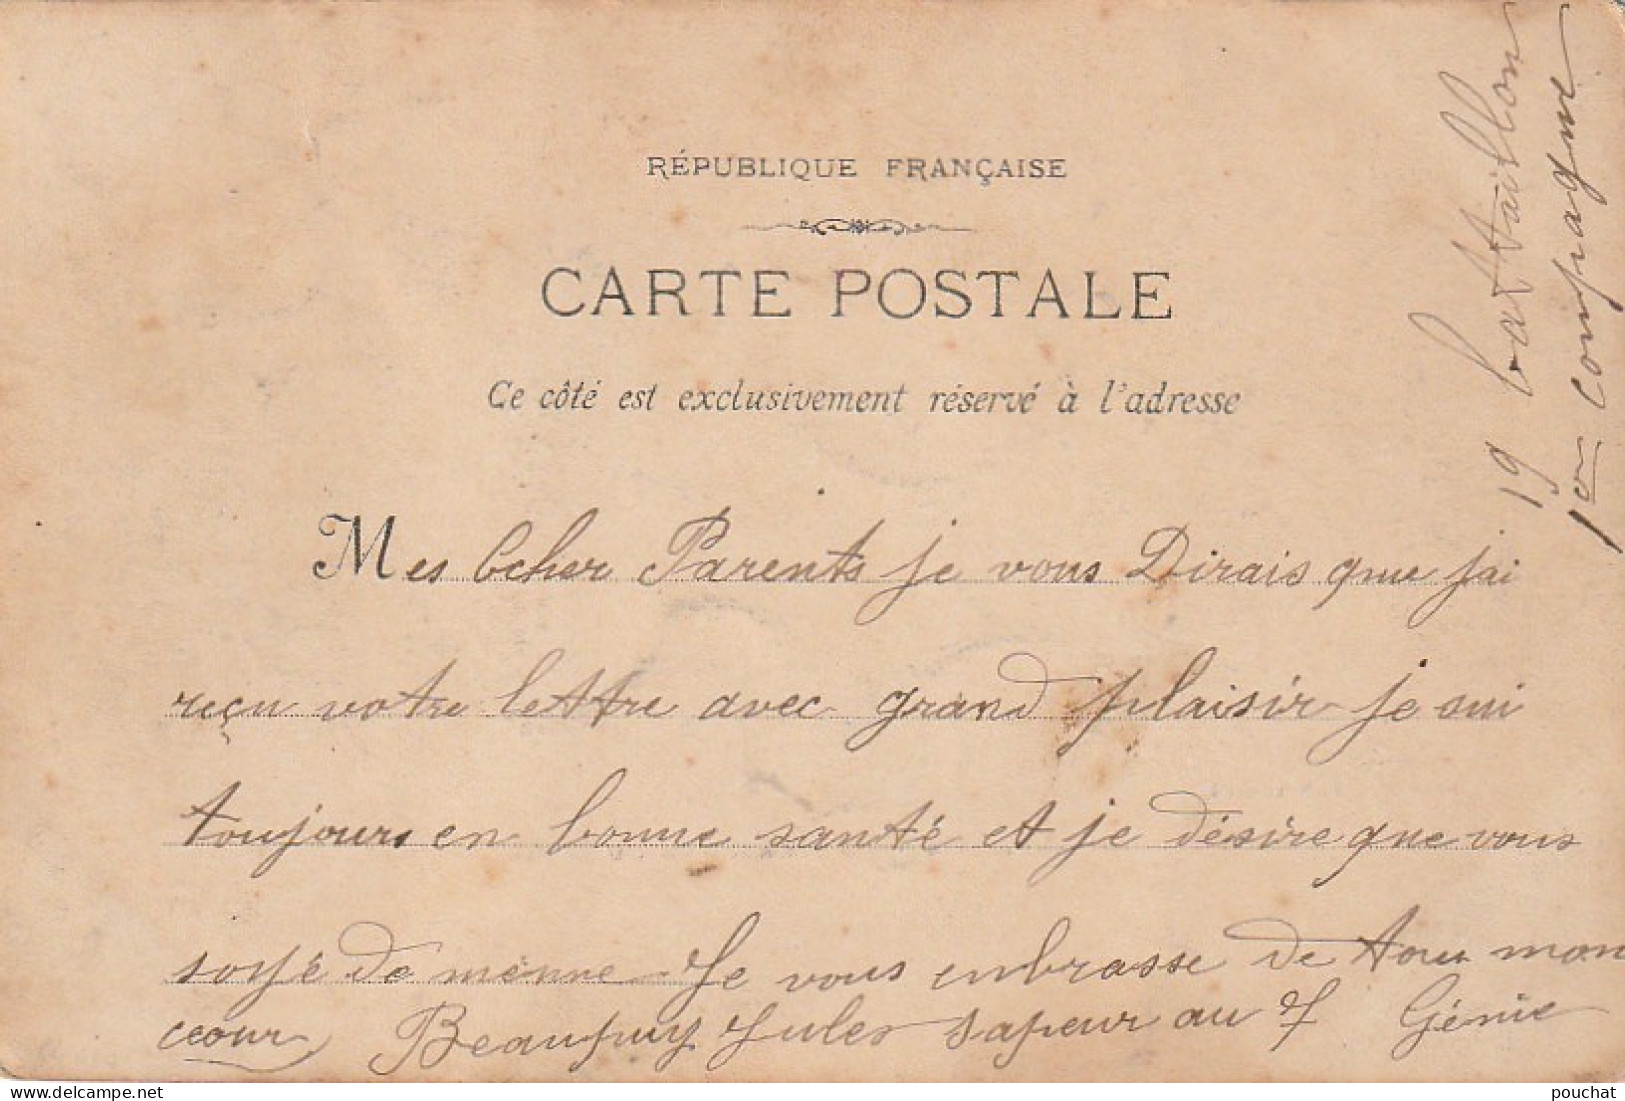 RÉPUBLIQUE FRANÇAISE
CARTE POSTALE
Ce côté est exclusivement réservé à l'adresse
19 battaillon
1er compagne
Mes Ccher Parents je vous Dirais que jai
reçu votre lettre avec grand plaisir je sui
toujours en bonne santé et je désire que vous
soyé de mênne Je vous enbrasse de tou mon
ceour Beaupuy Jules sapeur au 7 Génie
delcampe.net
pouchat